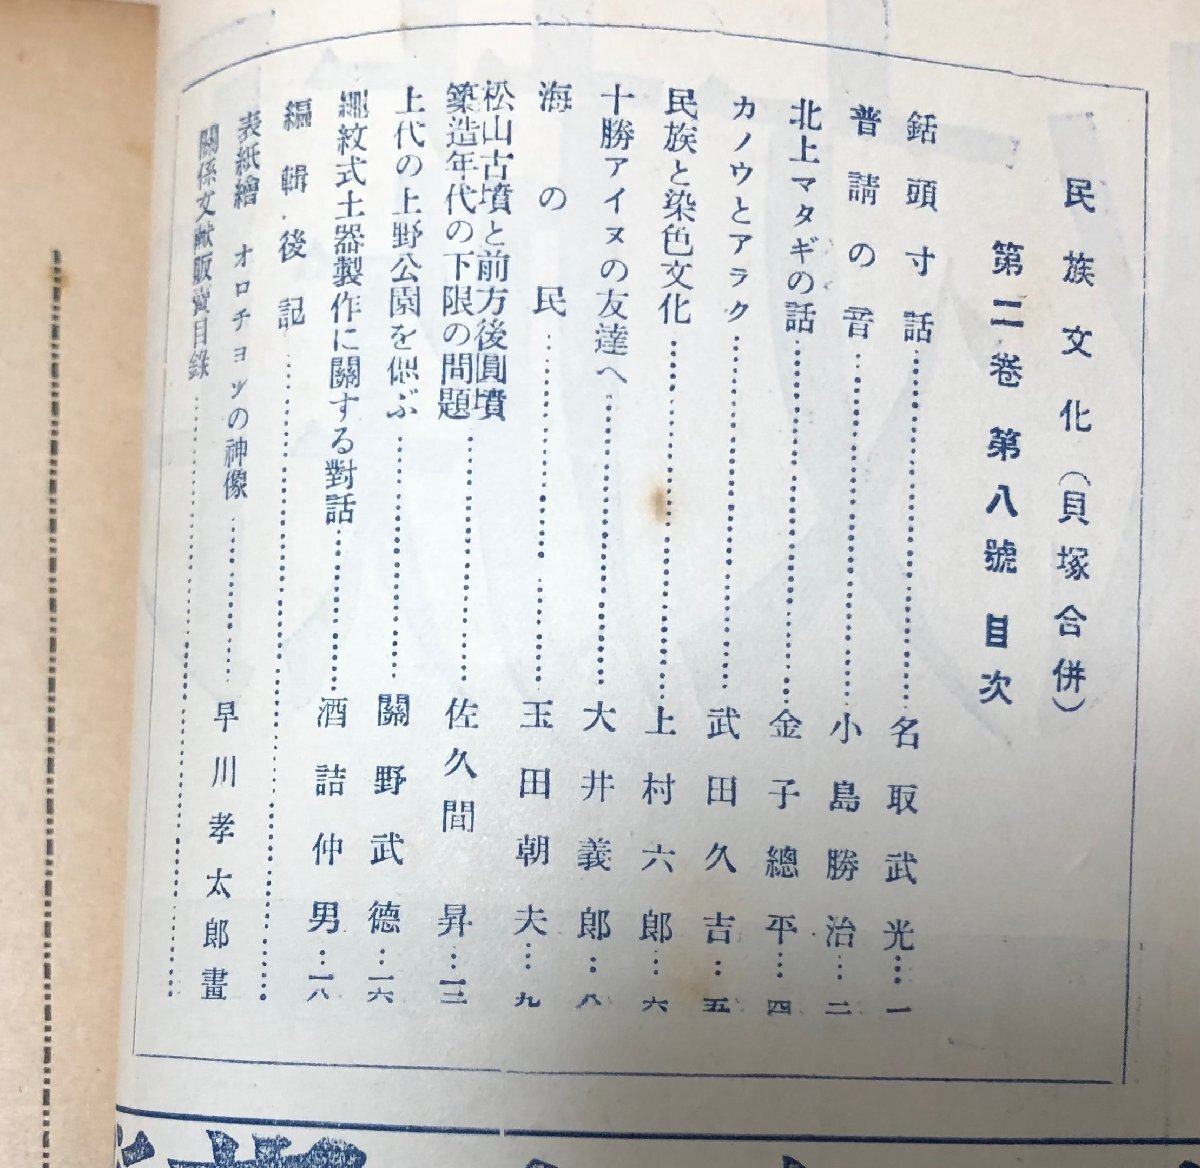 民族文化（貝塚合併）
第二卷第八號目次
銛頭寸話……名取武光…一
普請の音……小島勝治…二
北上マタギの話……金子總平…四
カノウとアラク……武田久吉…五
民族と染色文化……上村六郎…六
十勝アイヌの友達へ……大井義郎…八
海の民……玉田朝夫…九
松山古墳と前方後圓墳
築造年代の下限の問題……佐久間昇…一三
上代の上野公園を偲ぶ……關野武德…一六
繩紋式土器製作に關する對話……酒詰仲男…一八
編輯後記……
表紙繪 オロチョンの神像……早川孝太郎畫
關係文献販賣目錄……